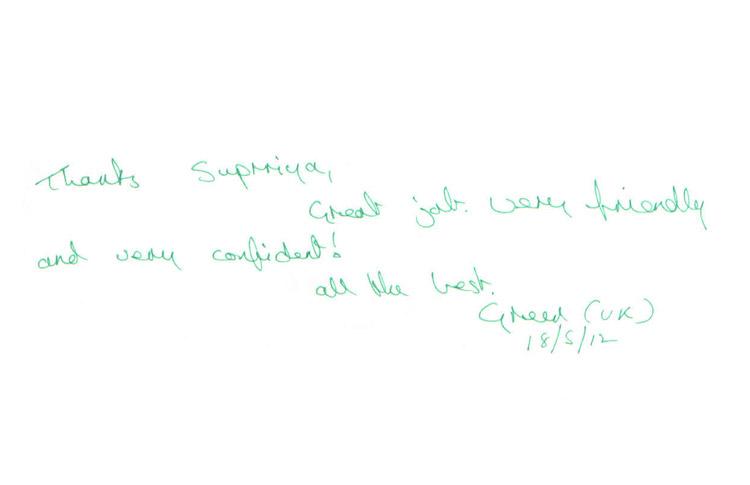 Thanks Supriya,
Great job. very friendly
and very confident!
all the best.
(UK)
18/5/12